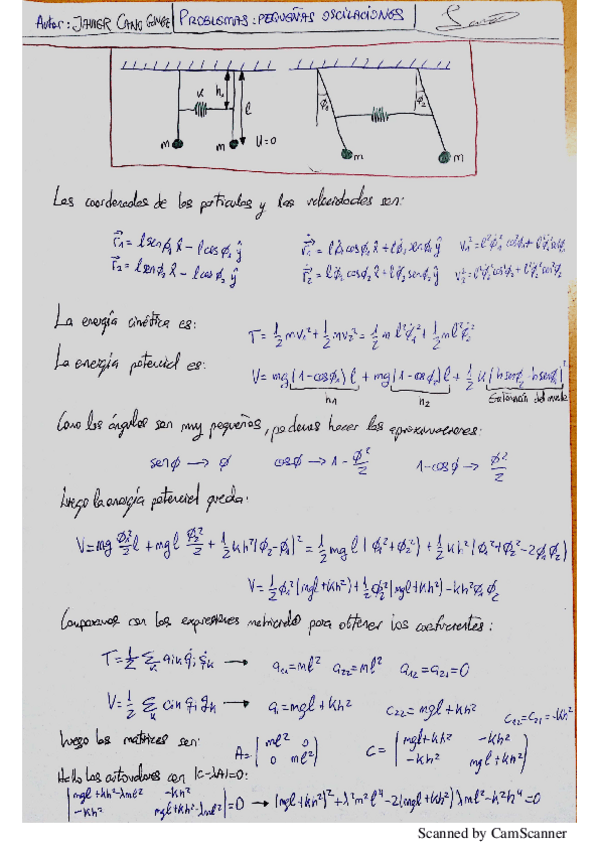 Autor: JAVIER CANO GÓMEZ PROBLEMAS: PEQUEÑAS OSCILACIONES
k h l
m m U=0
ϕ₁ ϕ₂
m m
Las coordenadas de las partículas y las velocidades son:
r⃗₁ = l senϕ₁ x̂ - l cosϕ₁ ŷ
r⃗₂ = l senϕ₂ x̂ - l cosϕ₂ ŷ
La energía cinética es:
T = 1/2 mv₁² + 1/2 mv₂² = 1/2 m l²ϕ̇₁² + 1/2 m l²ϕ̇₂²
La energía potencial es:
V = mg(1-cosϕ₁)l + mg(1-cosϕ₂)l + 1/2 k(h senϕ₂ - h senϕ₁)²
h₁ h₂
Como los ángulos son muy pequeños, podemos hacer las aproximaciones:
senϕ → ϕ cosϕ → 1 - ϕ²/2 1-cosϕ → ϕ²/2
Luego la energía potencial queda:
V = mg ϕ₁²/2 l + mgl ϕ₂²/2 + 1/2 kh²(ϕ₂-ϕ₁)² = 1/2 mgl(ϕ₁²+ϕ₂²) + 1/2 kh²(ϕ₁²+ϕ₂²-2ϕ₁ϕ₂)
V = 1/2 ϕ₁²(mgl+kh²) + 1/2 ϕ₂²(mgl+kh²) - kh²ϕ₁ϕ₂
Comparamos con las expresiones matriciales para obtener los coeficientes:
a₁₁ = ml² a₂₂ = ml² a₁₂ = a₂₁ = 0
c₂₂ = mgl + kh² c₁₂ = c₂₁ = -kh²
Luego las matrices son: A = (ml² 0 C = (mgl+kh² -kh²
0 ml²) -kh² mgl+kh²)
Hallo los autovalores con |C-λA|=0:
|mgl+kh²-λml² -kh²
-kh² mgl+kh²-λml²| = 0 → (mgl+kh²)² + λ²m²l⁴ - 2(mgl+kh²)λml² - k²h⁴ = 0
Scanned by CamScanner